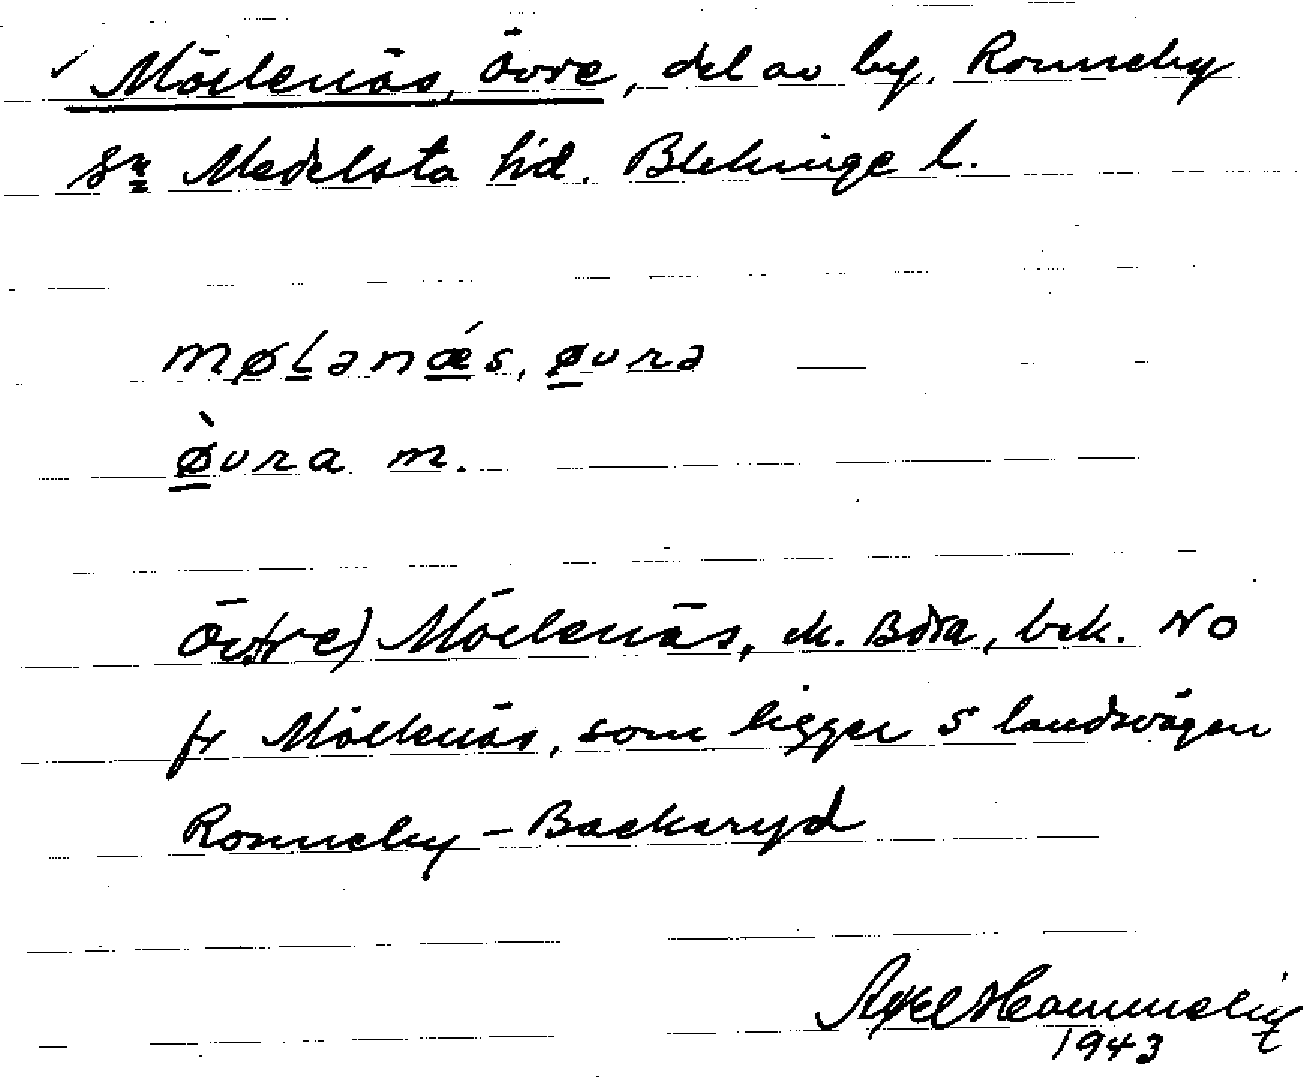 ✓ Möllenäs, Övre, del av by, Ronneby
sn Medelsta hd. Blekinge l.
møLanǽs, øvra
ø̀vra m.
Ö(v)re) Möllenäs, ek. Böra, bek. NO
fr Möllenäs, som ligger S landsvägen
Ronneby - Backaryd
1943